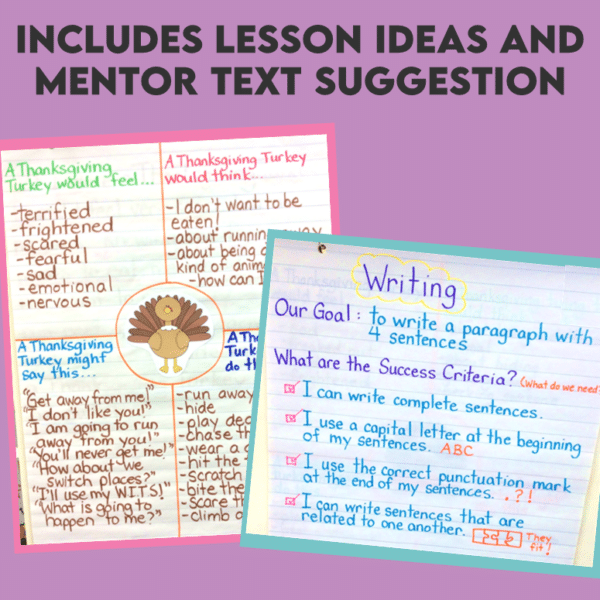 INCLUDES LESSON IDEAS AND
MENTOR TEXT SUGGESTION
A Thanksgiving
Turkey would feel...
-terrified
-frightened
-scared
-fearful
-sad
-emotional
-nervous
A Thanksgiving Turkey
would think...
-I don't want to be
eaten!
-about running away
-about being a
kind of anim
-how can I
A Thanksgiving
Turkey might
say this...
"Get away from me!"
"I don't like you!"
"I am going to run
away from you!"
"You'll never get me!"
"How about we
switch places?"
"I'll use my WITS!"
"What is going to
happen to me?"
A Th
Turk
do th
-run away
-hide
-play dea
-chase th
-wear a c
-hit the
-scratch
-bite the
-scare th
-climb a
Writing
Our Goal: to write a paragraph with
4 sentences
What are the Success Criteria? (What do we need?
I can write complete sentences.
I use a capital letter at the beginning
of my sentences. ABC
I use the correct punctuation mark
at the end of my sentences. . ? !
I can write sentences that are
related to one another. They
fit!